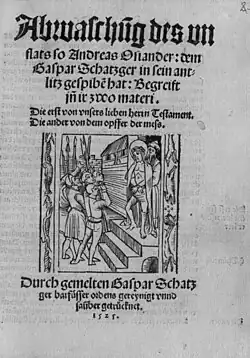 Abwaschũg des vn
flats so Andreas Osiander: dem
Gaspar Schatzger in sein ant-
litz gespibẽ hat: Begreift
jñ ir zwo materi.
Die erst von vnsers lieben herrn Testament.
Die ander von dem opffer der mess.
Durch gemelten Gaspar Schatz
ger barfüsser ordens gereynigt vnnd
sauber getrücknet.
1525.